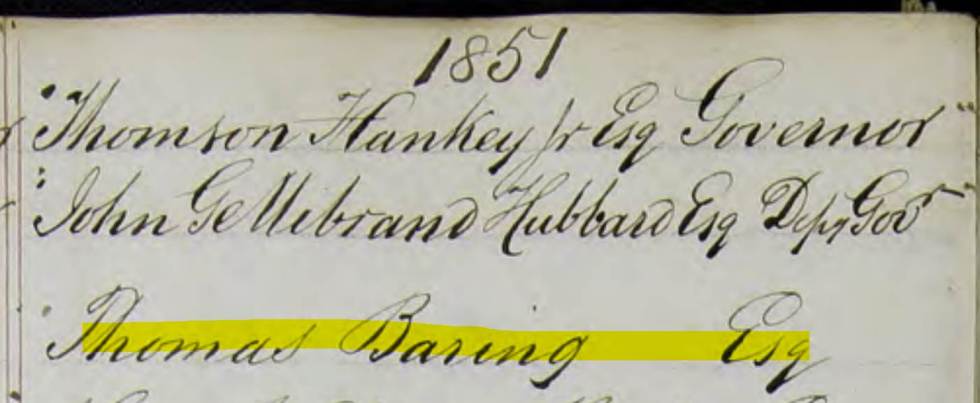 1851
Thomson Hankey Jr Esq Governor
John Gellibrand Hubbard Esq Depy Govr
Thomas Baring Esq